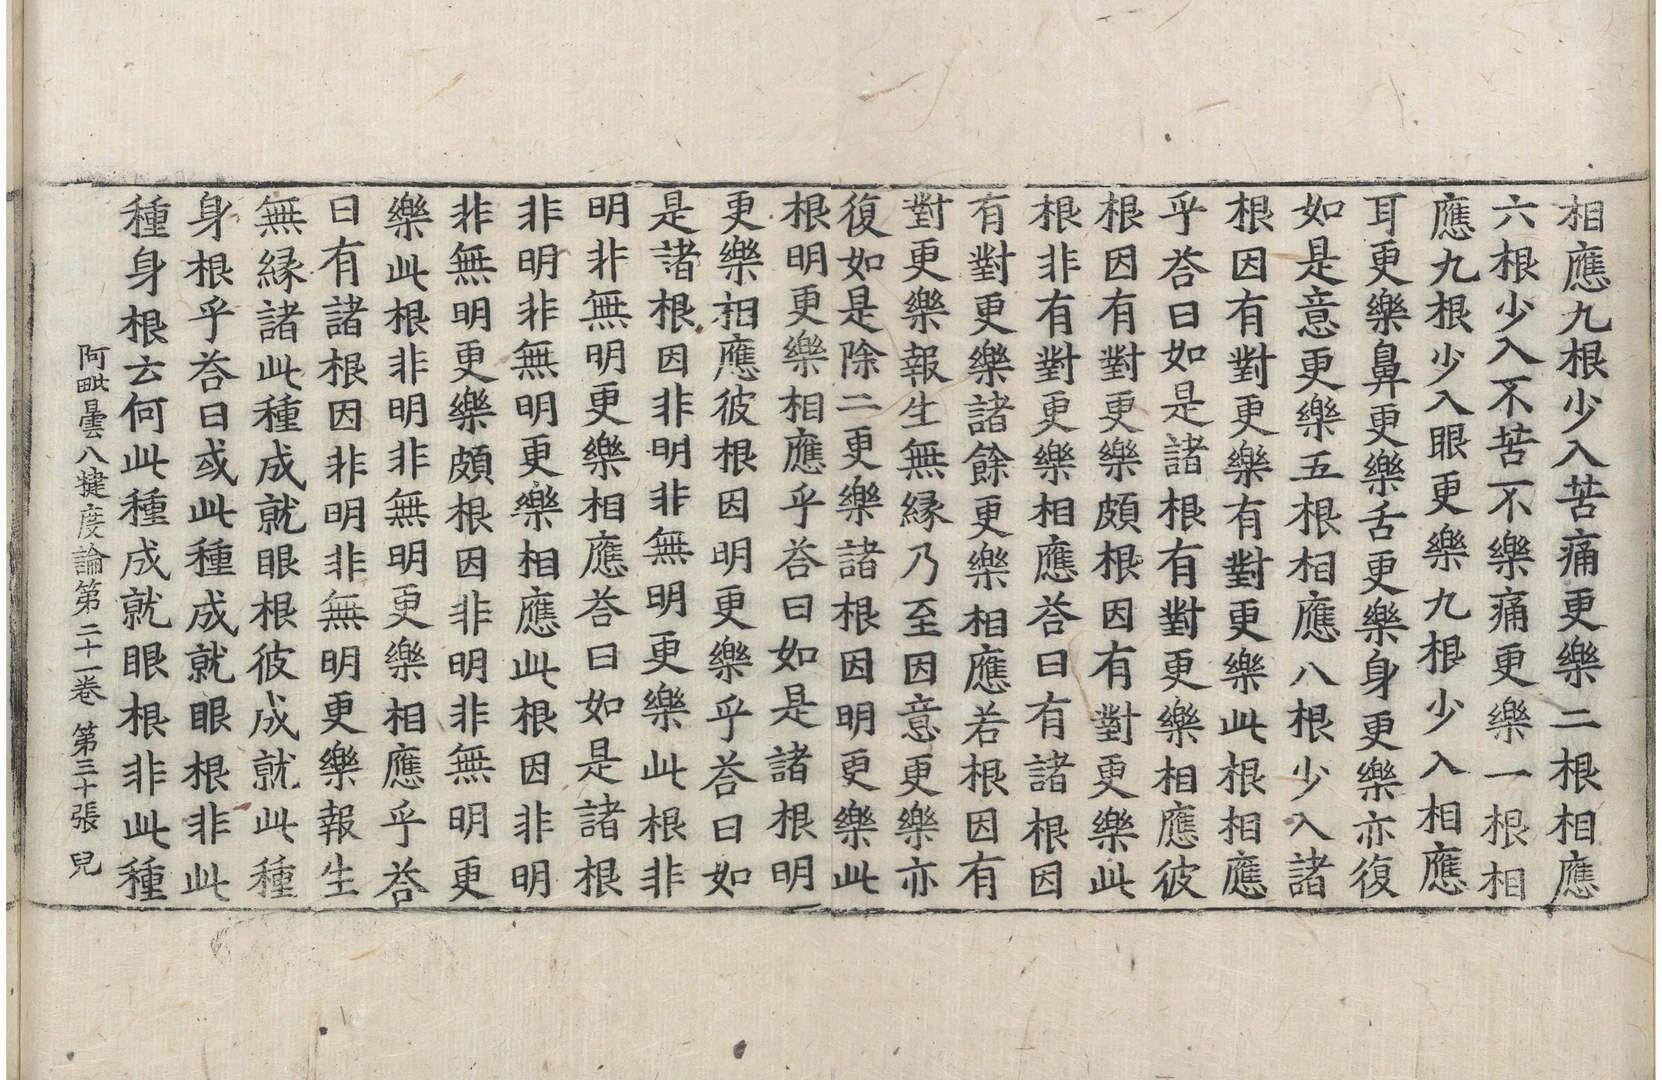 相應九根少入苦痛更樂二根相應
六根少入不苦不樂痛更樂一根相
應九根少入眼更樂九根少入相應
耳更樂鼻更樂舌更樂身更樂亦復
如是意更樂五根相應八根少入諸
根因有對更樂有對更樂此根相應
乎荅曰如是諸根有對更樂相應彼
根因有對更樂頗根因有對更樂此
根非有對更樂相應荅曰有諸根因
有對更樂諸餘更樂相應若根因有
對更樂報生無緣乃至因意更樂亦
復如是除二更樂諸根因明更樂此
根明更樂相應乎荅曰如是諸根明
更樂相應彼根因明更樂乎荅曰如
是諸根因非明非無明更樂此根非
明非無明更樂相應荅曰如是諸根
非明非無明更樂相應此根因非明
非無明更樂頗根因非明非無明更
樂此根非明非無明更樂相應乎荅
曰有諸根因非明非無明更樂報生
無緣諸此種成就眼根彼成就此種
身根乎荅曰或此種成就眼根非此
種身根云何此種成就眼根非此種
阿毗曇八揵度論第二十一卷 第三十張 兒